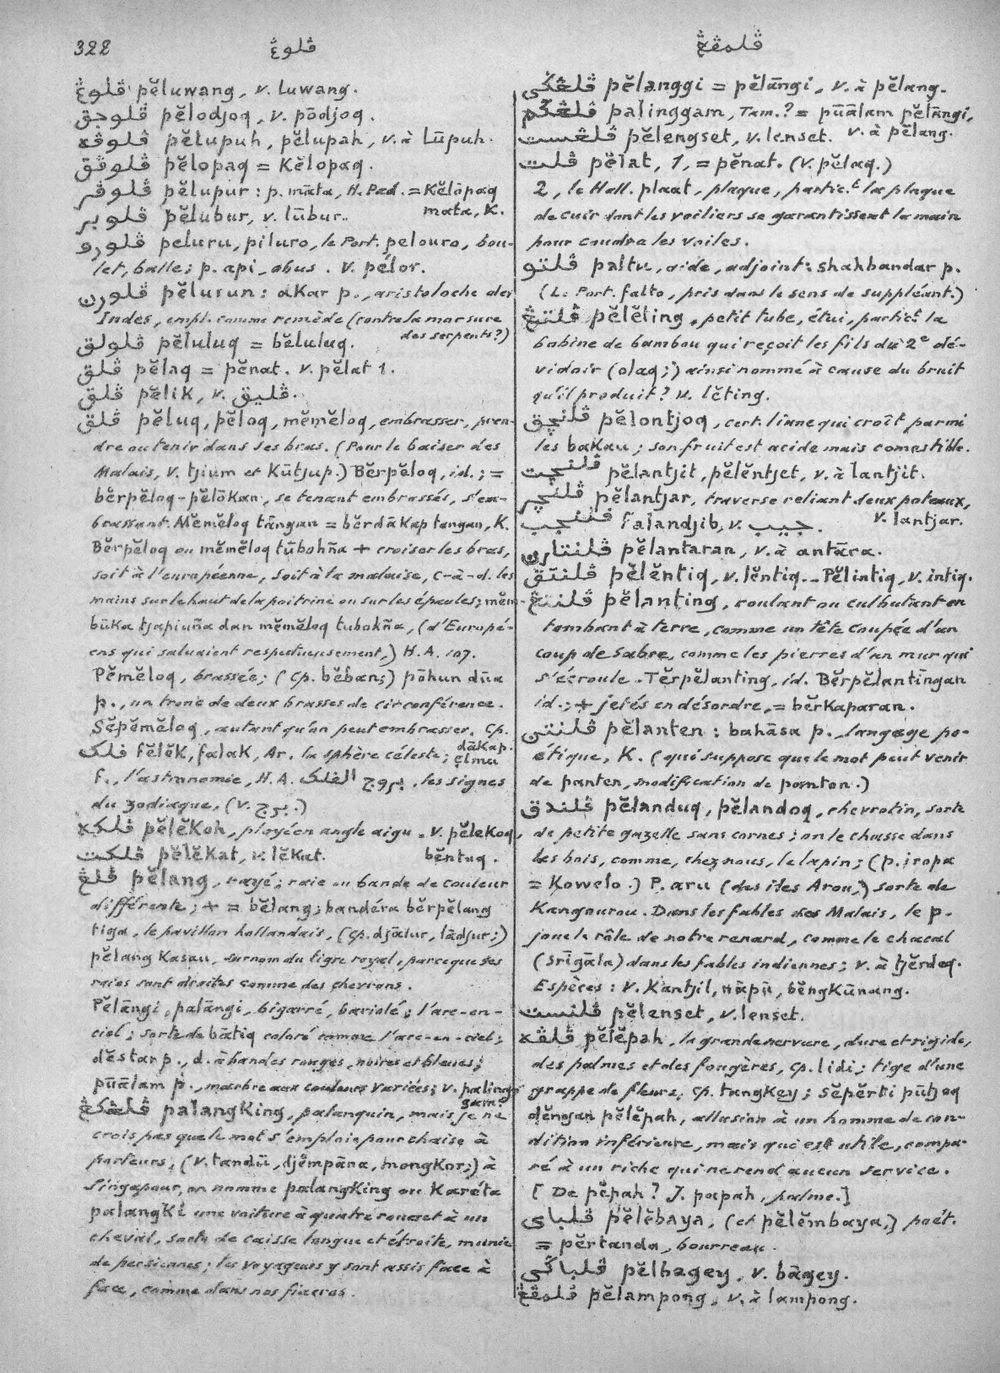 322
ڤلوڠ
ڤلمڤڠ
ڤلوڠ pĕluwang, v. luwang.
ڤلوجق pĕlodjoq, v. pōdjoq.
ڤلوڤه pĕlupuh, pĕlupah, v. à lūpuh.
ڤلوڤق pĕlopaq = Kĕlopaq.
ڤلوڤر pĕlupur : p. māta, H. Ped. = Kĕlōpaq
mata, K.
ڤلوبر pĕlubur, v. lūbur.
ڤلورو peluru, piluro, le Port. pelouro, bou-
let, balle; p. api, obus. V. pélor.
ڤلورن pĕlurun : aKar p., aristoloche des
Indes, empl. comme remède (contre la morsure
des serpents?)
ڤلولق pĕluluq = bĕluluq.
ڤلق pĕlaq = pĕnat. v. pĕlat 1.
ڤلق pĕlik, v. ڤليق.
ڤلق pĕluq, pĕloq, mĕmĕloq, embrasser, pren-
dre ou tenir dans ses bras. (Pour le baiser des
Malais, v. tjium et Kūtjup.) Bĕrpĕloq, id.; =
bĕrpĕloq-pĕlōkan, se tenant embrassés, s'em-
brassant. Mĕmĕloq tāngan = bĕrdāKap tangan, K.
Bĕrpĕloq ou mĕmĕloq tūbohña + croiser les bras,
soit à l'européenne, soit à la malaise, c-à-d. les
mains sur le haut de la poitrine ou sur les épaules; mĕm-
būka tjapiuña dan mĕmĕloq tubohña, (d'Europé-
ens qui saluaient respectueusement,) H. A. 107.
Pĕmĕloq, brassée; (cp. bĕban;) pōhun dūa
p., un tronc de deux brasses de circonférence.
Sĕpĕmĕloq, autant qu'on peut embrasser. Cp.
dāKap.
فلک fĕlĕk, falak, Ar. la sphère céleste; ĕlmu
f., l'astronomie, H. A. بروج الفلک, les signes
du zodiaque, (v. برج.)
ڤلکه pĕlĕKoh, ployé en angle aigu. v. pĕleKoq,
bĕntuq.
ڤلکت pĕlĕKat, v. lĕKat.
ڤلڠ pĕlang, rayé; raie ou bande de couleur
différente; + = bĕlang; bandéra bĕrpĕlang
tiga, le pavillon hollandais, (cp. djālur, lādjur;)
pĕlang Kasau, surnom du tigre royal, parce que ses
raies sont droites comme des chevrons.
Pĕlāngi, palāngi, bigarré, bariolé; l'arc-en-
ciel; sorte de bātiq coloré comme l'arc-en-ciel;
dĕstar p., d. à bandes rouges, noires et bleues;
pūālam p., marbre aux couleurs variées; v. paling-
gam?
ڤلڠکڠ palangKing, palanquin, mais je ne
crois pas que le mot s'emploie pour chaise à
porteurs, (v. tandū, djĕmpāna, mongKor;) à
Singapour, on nomme palangKing ou Karéta
palangKi une voiture à quatre roues et à un
cheval, sorte de caisse longue et étroite, munie
de persiennes; les voyageurs y sont assis face à
face, comme dans nos fiacres.
ڤلڠݢي pĕlanggi = pĕlāngi, v. à pĕlang.
ڤلڠݢم palinggam, Tam.? = pūālam pĕlāngi,
v. à pĕlang.
ڤلڠست pĕlengset, v. lenset.
ڤلت pĕlat, 1, = pĕnat. (v. pĕlaq.)
2, le Holl. plaat, plaque, partict. la plaque
de cuir dont les voiliers se garantissent la main
pour coudre les voiles.
ڤلتو paltu, aide, adjoint: shahbandar p.
(L. Port. falto, pris dans le sens de suppléant.)
ڤلتيڠ pĕlĕting, petit tube, étui, partict. la
bobine de bambou qui reçoit les fils du 2e dé-
vidoir (olaq;) ainsi nommé à cause du bruit
qu'il produit? v. lĕting.
ڤلنچق pĕlontjoq, cert. liane qui croît parmi
les baKau; son fruit est acide mais comestible.
ڤلنچت pĕlantjit, pĕlĕntjet, v. à lantjit.
ڤلنچر pĕlantjar, traverse reliant deux poteaux,
v. lantjar.
فلنجب falandjib, v. جيب.
ڤلنتارن pĕlantaran, v. à antāra.
ڤلنتق pĕlĕntiq, v. lĕntiq. — Pĕlintiq, v. intiq.
ڤلنتڠ pĕlanting, roulant ou culbutant en
tombant à terre, comme un tête coupée d'un
coup de sabre, comme les pierres d'un mur qui
s'écroule. Tĕrpĕlanting, id. Bĕrpĕlantingan
id.; + jetés en désordre, = bĕrKaparan.
ڤلنتن pĕlanten : bahāsa p., langage po-
étique, K. (qui suppose que le mot peut venir
de panten, modification de panton.)
ڤلندق pĕlanduq, pĕlandoq, chevrotin, sorte
de petite gazelle sans cornes; on le chasse dans
les bois, comme, chez nous, le lapin; (p. jropa
= Kowelo.) P. aru (des îles Arou,) sorte de
Kangourou. Dans les fables des Malais, le p.
joue le rôle de notre renard, comme le chacal
(srīgāla) dans les fables indiennes; v. à tjĕrdeq.
Espèces: v. Kantjil, nāpū, bĕngKūnang.
ڤلنست pĕlenset, v. lenset.
ڤلڤه pĕlĕpah, la grande nervure, dure et rigide,
des palmes et des fougères, cp. lidi; tige d'une
grappe de fleurs, cp. tangKey; sĕpĕrti pūtjoq
dĕngan pĕlĕpah, allusion à un homme de con-
dition inférieure, mais qui est utile, compa-
ré à un riche qui ne rend aucun service.
[ De pĕpah? J. papah, palme.]
ڤلباي pĕlĕbaya, (et pĕlĕmbaya,) poét.
= pĕrtanda, bourreau.
ڤلباݢي pĕlbagey, v. bāgey.
ڤلمڤڠ pĕlampong, v. à lampong.